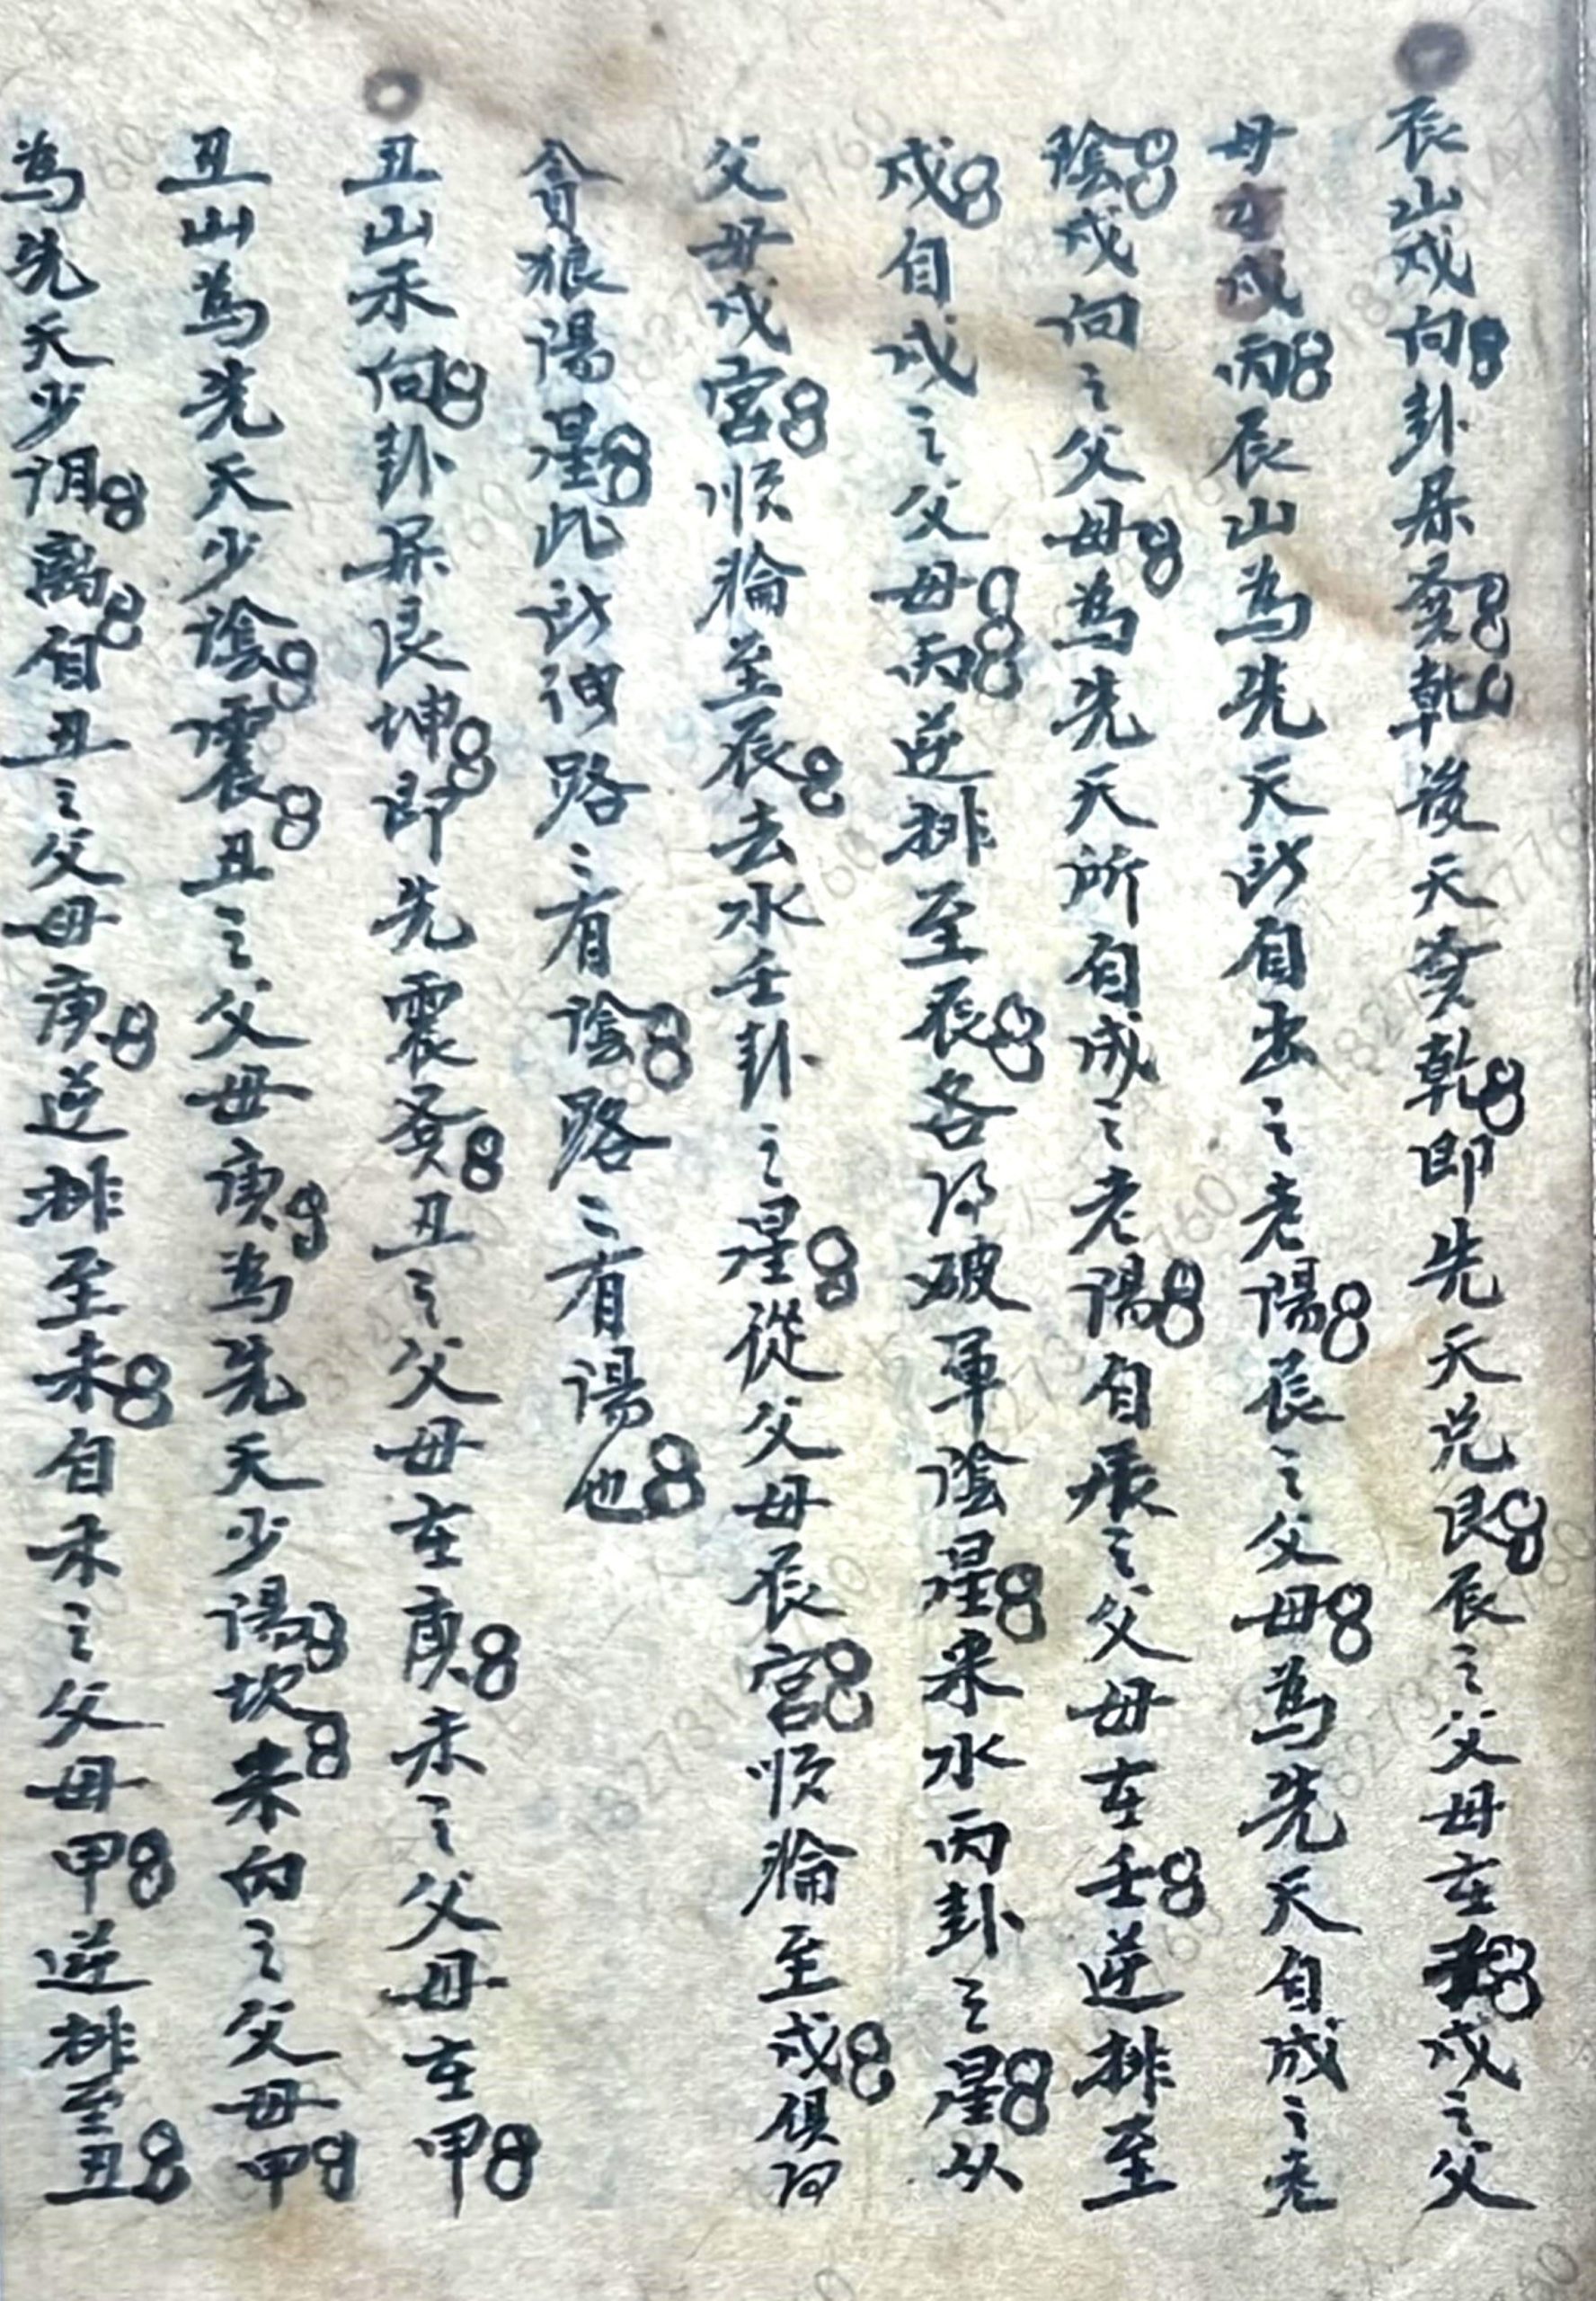 辰山戌向卦屬巽乾後天巽乾即先天兌艮辰之父母在壬戌之父
母在丙辰山為先天所自出之老陽辰之父母為先天自成之老
陰戌向之父母為先天所自成之老陽自辰之父母在壬逆排至
戌自戌之父母丙逆排至辰各得破軍陰星來水丙卦之星从
父母戌宮順輪至辰去水壬卦之星從父母辰宮順輪至戌俱得
貪狼陽星此所謂路二有陰路二有陽也
丑山未向卦屬艮坤即先震巽丑之父母在庚未之父母在甲
丑山為先天少陰震丑之父母庚為先天少陽坎未向之父母甲
為先天少阴離自丑之父母庚逆排至未自未之父母甲逆排至丑